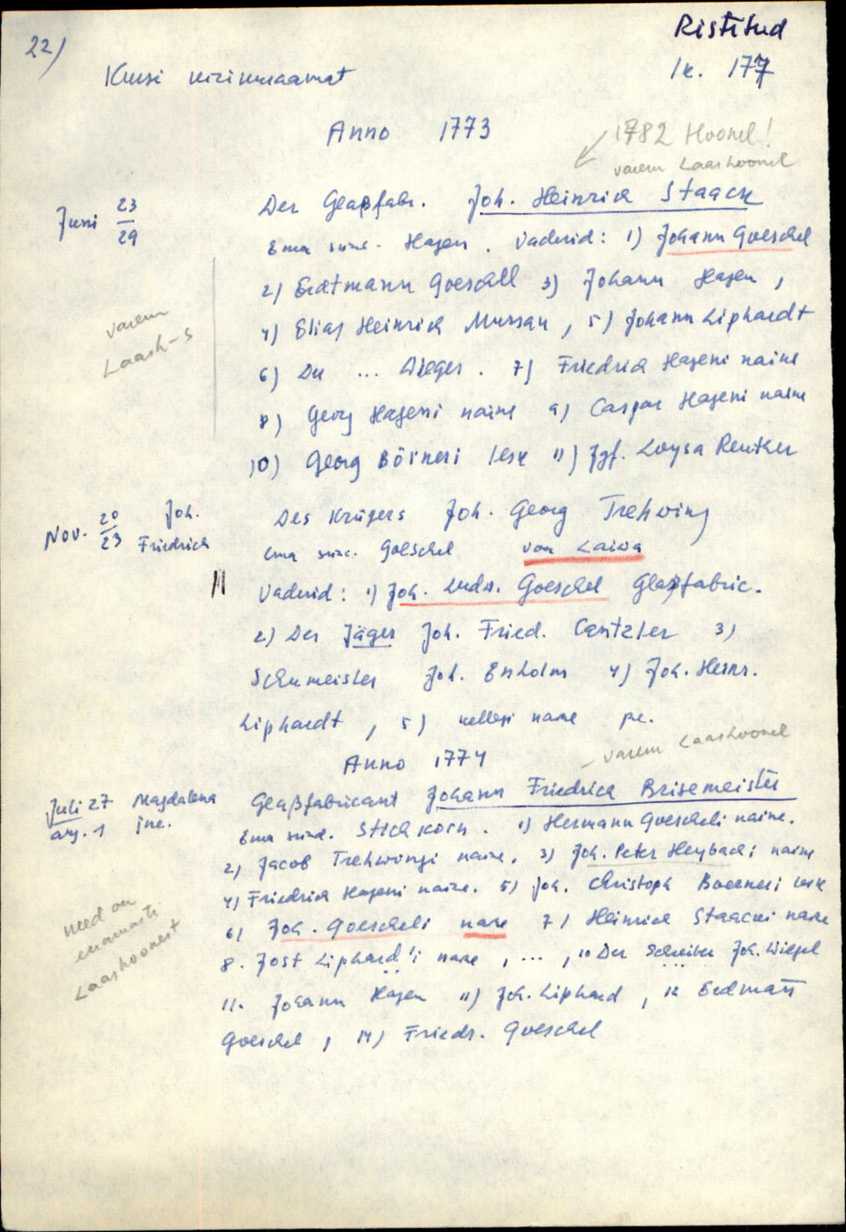 22)
Ristitud
Kursi kirikuraamat
lk. 177
Anno 1773
1782 Hoonel!
varem Laashoonel
Juni 23/29
Der Glaßfabr. Joh. Heinrich Staack
Ema sünd. Hagen. Vaderid: 1) Johann Goeschel
2) Erdtmann Goeschell 3) Johann Hagen,
varem
Laash-s
4) Elias Heinrich Mussau, 5) Johann Liphardt
6) Der ... 7) Friedrich Hageni naine
8) Georg Hageni naine 9) Caspar Hageni naine
10) Georg Börneri lesk 11) Jgf. Loysa Reutker
Nov. 20/23 Joh. Friedrich
Des Krügers Joh. Georg Trehwing
ema sünd. Goeschel von Laiwa
Vaderid: 1) Joh. Ludw. Goeschel Glaßfabric.
2) Der Jäger Joh. Fried. Cantzler 3)
Schumeister Joh. Enholm 4) Joh. Heinr.
Liphardt, 5) kellegi naine
Anno 1774
- varem Laashoonel
Juli 27
aug. 1
Magdalena
Ine.
Glaßfabricant Johann Friedrich Brisemeister
Ema sünd. Stichkorn. 1) Hermann Goescheli naine.
2) Jacob Trehwingi naine. 3) Joh. Peter Heybachi naine
4) Friedrich Hageni naine. 5) Joh. Christoph Boerneri lesk
6) Joh. Goescheli naine 7) Heinrich Staacki naine
need on
enamasti
Laashoonest
8. Jost Liphard'i naine, ..., 10 Der Schreiber Joh. Wiegel
11. Johann Hagen 11) Joh. Liphard, 12 Erdmañ
Goeschel, 14) Friedr. Goeschel